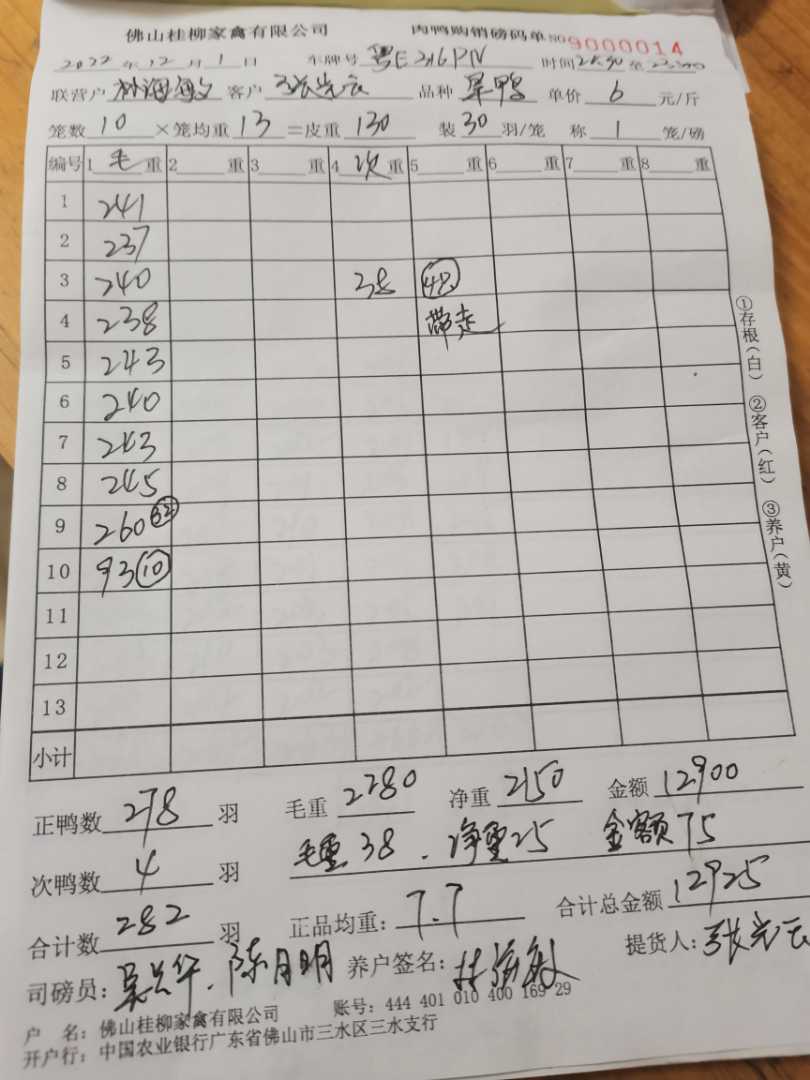 佛山桂柳家禽有限公司 肉鸭购销磅码单 NO 9000014
2022 年 12 月 1 日 车牌号 粤E 2 6PN 时间 至
联营户 林海敏 客户 张光云 品种 单价 6 元/斤
笼数 10 ×笼均重 13 =皮重 130 装 30 羽/笼 称 1 笼/磅
编号 1 毛 重 2 重 3 重 4 次 重 5 重 6 重 7 重 8 重
1 241
2 237
3 240 38 48
4 238 带走
5 243
6 240
7 243
8 245
9 260 32
10 93 10
11
12
13
小计
①存根(白) ②客户(红) ③养户(黄)
正鸭数 278 羽 毛重 2280 净重 2150 金额 12900
次鸭数 4 羽 毛重 38 . 净重 25 金额 75
合计数 282 羽 正品均重: 7.7 合计总金额 12925
司磅员: 陈月明 养户签名: 林海敏 提货人: 张光云
户 名: 佛山桂柳家禽有限公司 账号: 444 401 010 400 169 29
开户行: 中国农业银行广东省佛山市三水区三水支行